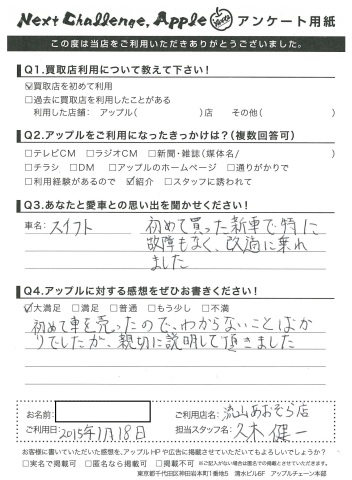 Next Challenge, Apple アンケート用紙
この度は当店をご利用いただきありがとうございました。
Q1.買取店利用について教えて下さい！
☑買取店を初めて利用
□過去に買取店を利用したことがある
利用した店舗： アップル( )店 その他( )
Q2.アップルをご利用になったきっかけは？(複数回答可)
□テレビCM □ラジオCM □新聞・雑誌(媒体名/ )
□チラシ □DM □アップルのホームページ □通りがかりで
□利用経験があるので ☑紹介 □スタッフに誘われて
Q3.あなたと愛車との思い出を聞かせください！
車名： スイフト 初めて買った新車で特に
故障もなく、快適に乗れ
ました
Q4.アップルに対する感想をぜひお書きください！
☑大満足 □満足 □普通 □もう少し □不満
初めて車を売ったので、わからないことばか
りでしたが、親切に説明して頂きました
お名前： ご利用店名： 流山あおぞら店
ご利用日： 2015年1月18日 担当スタッフ名： 久木 健一
お客様に書いていただいた感想を、アップルHPや広告に掲載させていただいてもよろしいでしょうか？
□実名で掲載可 □匿名なら掲載可 □掲載不可 ※ご記入がない場合は匿名での掲載とさせていただきます。
東京都千代田区神田岩本町1番地5 清水ビル6F アップルチェーン本部